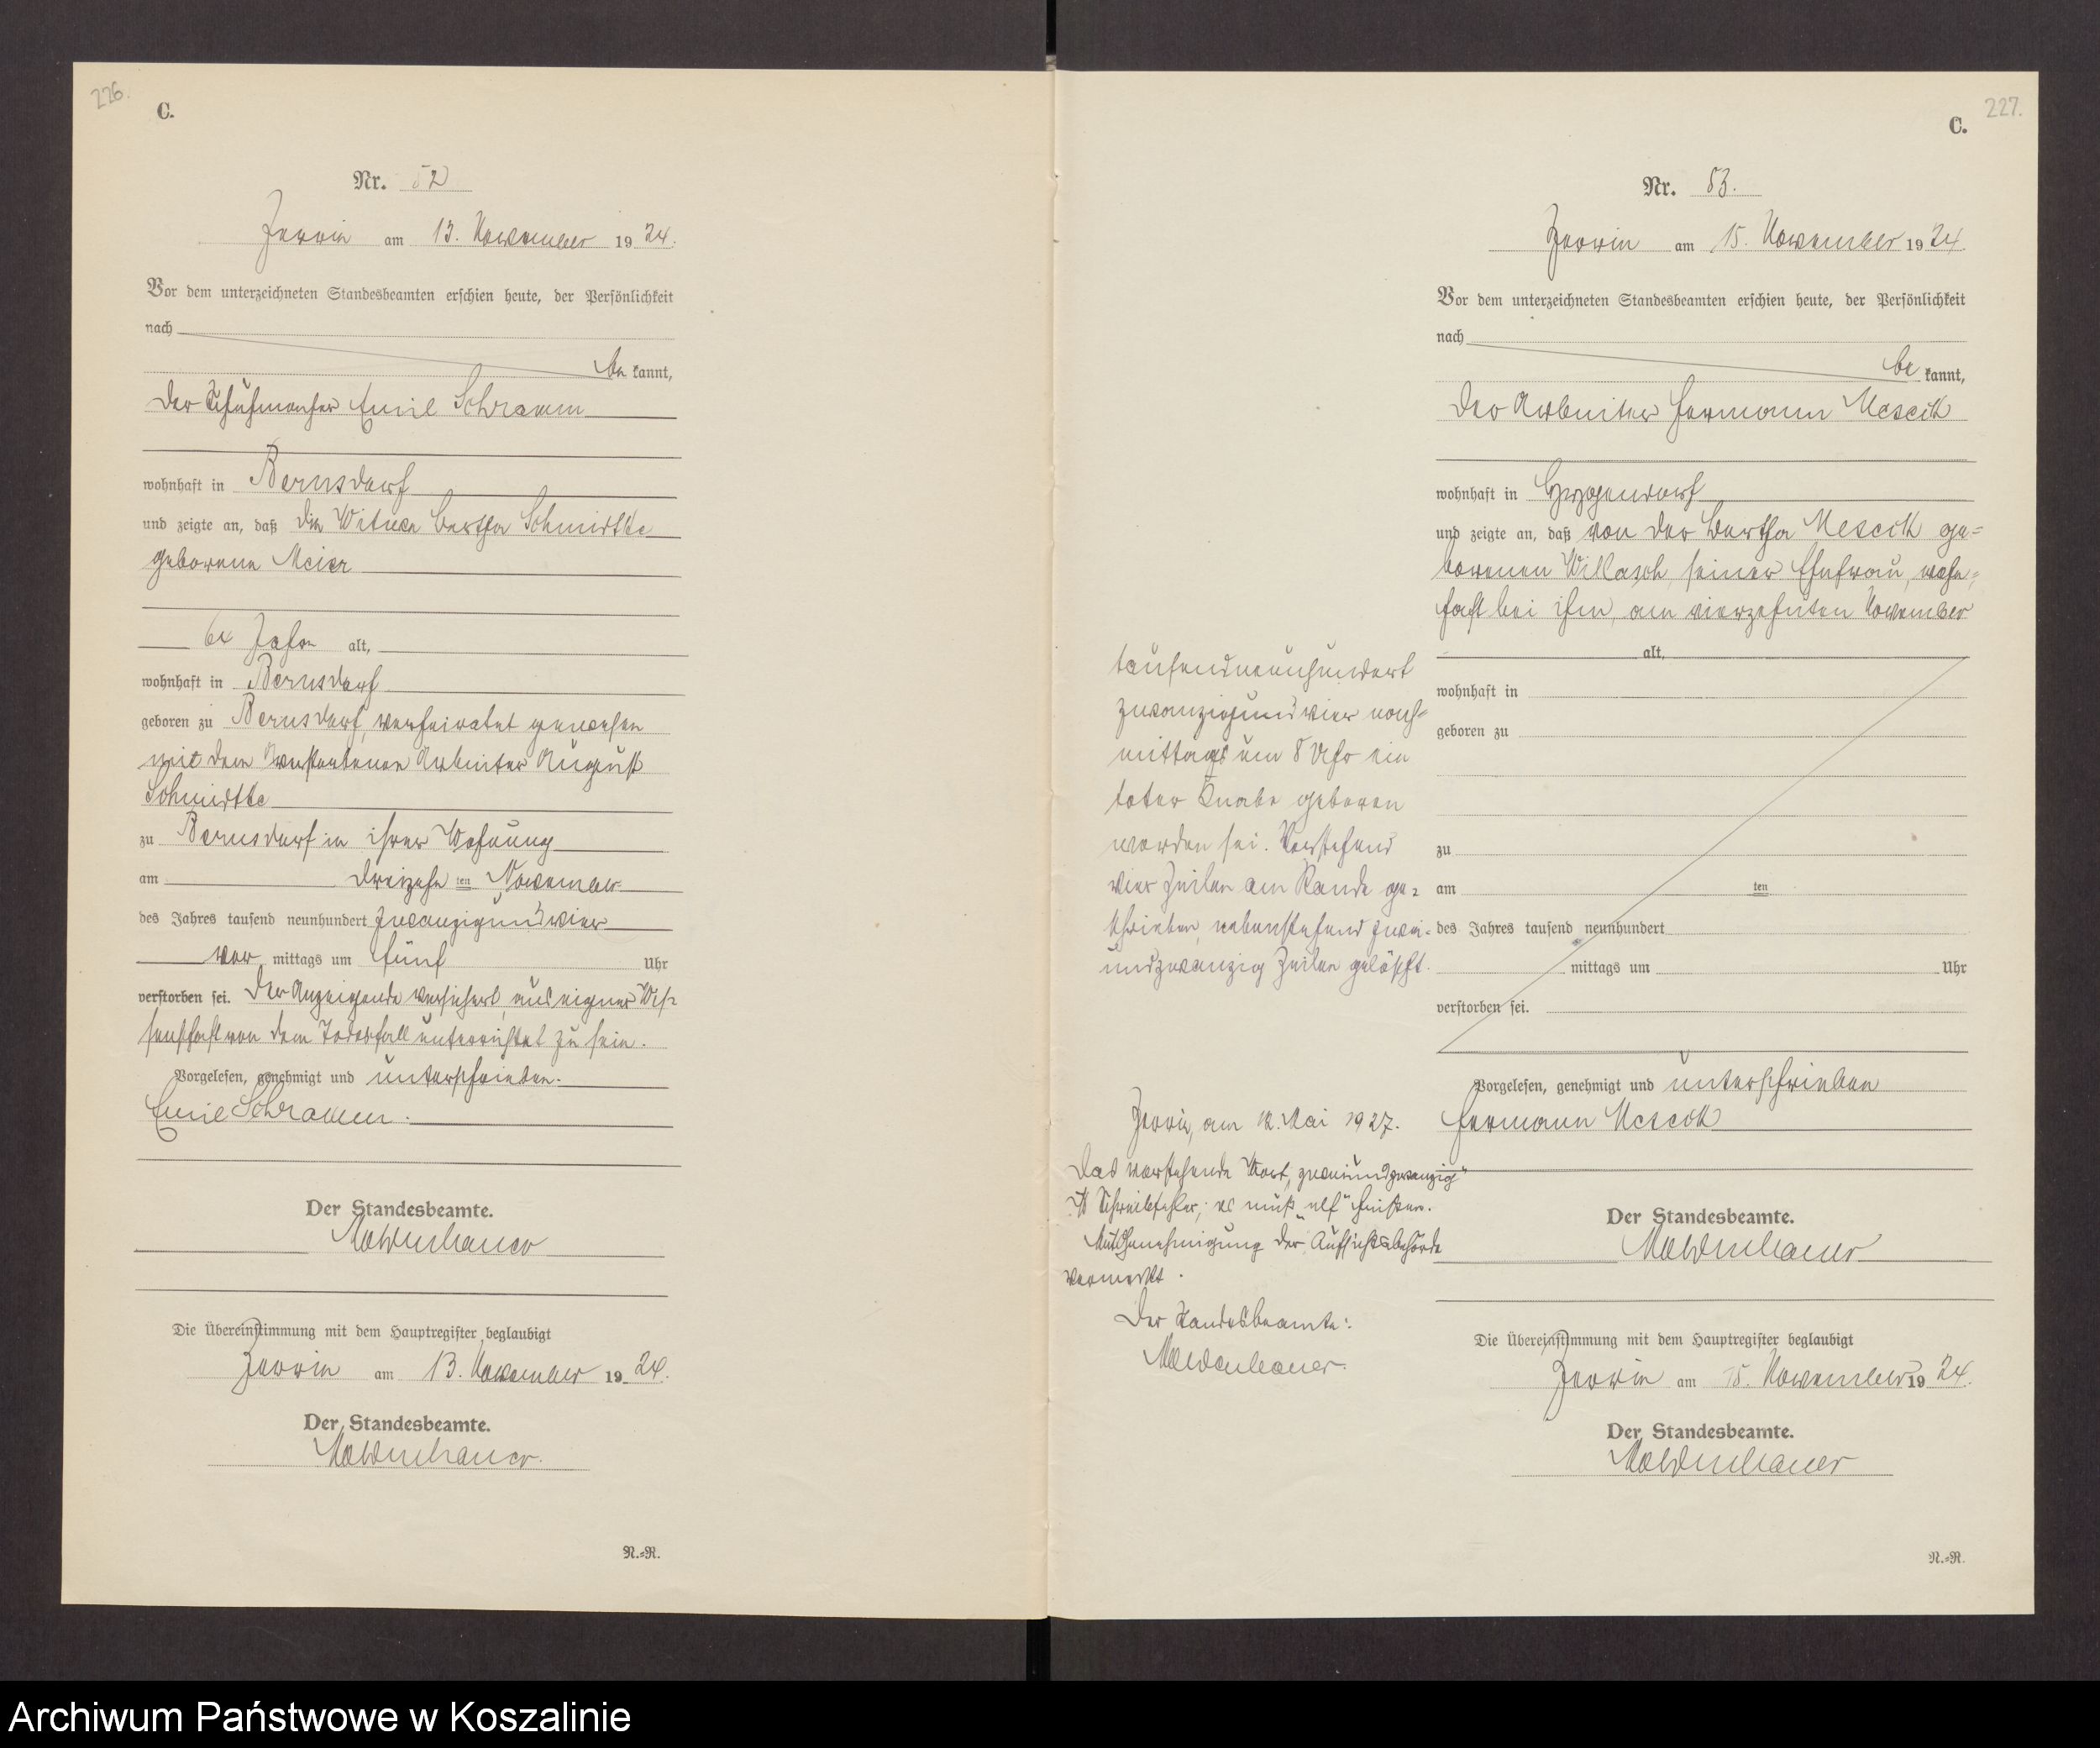 226.
C.
Nr. 52
Zerrin am 13. November 1924.
Vor dem unterzeichneten Standesbeamten erschien heute, der Persönlichkeit
nach
be kannt,
der Schuhmacher Emil Schramm
wohnhaft in Bernsdorf
und zeigte an, daß die Witwe Bertha Schmidtke
geborene Meier
Jahre alt,
wohnhaft in Bernsdorf
geboren zu Bernsdorf, verheiratet gewesen
mit dem verstorbenen Arbeiter August
Schmidtke
zu Bernsdorf in ihrer Wohnung
am dreizehn ten November
des Jahres tausend neunhundert zwanzigundvier
vor mittags um fünf Uhr
verstorben sei. Der Anzeigende versichert, aus eigner Wis-
senschaft von dem Todesfall unterrichtet zu sein.
Vorgelesen, genehmigt und unterschrieben.
Emil Schramm.
Der Standesbeamte.
Moldenhauer
Die Übereinstimmung mit dem Hauptregister beglaubigt
Zerrin am 13. November 1924.
Der Standesbeamte.
Moldenhauer.
N.=R.
227.
C.
Nr. 53.
Zerrin am 15. November 1924
Vor dem unterzeichneten Standesbeamten erschien heute, der Persönlichkeit
nach
be kannt,
der Arbeiter Hermann Mescik
wohnhaft in
und zeigte an, daß von der Bertha Mescik ge=
borenen seiner Ehefrau, wohn=
haft bei ihm, am vierzehnten November
tausendneunhundert
zwanzigundvier nach=
mittags um 8 Uhr ein
toter Knabe geboren
worden sei. Vorstehend
vier Zeilen am Rande ge=
schrieben, nebenstehend zwei=
undzwanzig Zeilen gelöscht.
alt,
wohnhaft in
geboren zu
zu
am ten
des Jahres tausend neunhundert
mittags um Uhr
verstorben sei.
Vorgelesen, genehmigt und unterschrieben
Hermann Mescik
Zerrin, am 12. Mai 1927.
Das vorstehende Wort „zweiundzwanzig"
ist Schreibfehler; es muß „elf" heißen.
Mit Genehmigung der Aufsichtsbehörde
vermerkt.
Der Standesbeamte:
Moldenhauer.
Der Standesbeamte.
Moldenhauer
Die Übereinstimmung mit dem Hauptregister beglaubigt
Zerrin am 15. November 1924.
Der Standesbeamte.
Moldenhauer
N.=R.
Archiwum Państwowe w Koszalinie